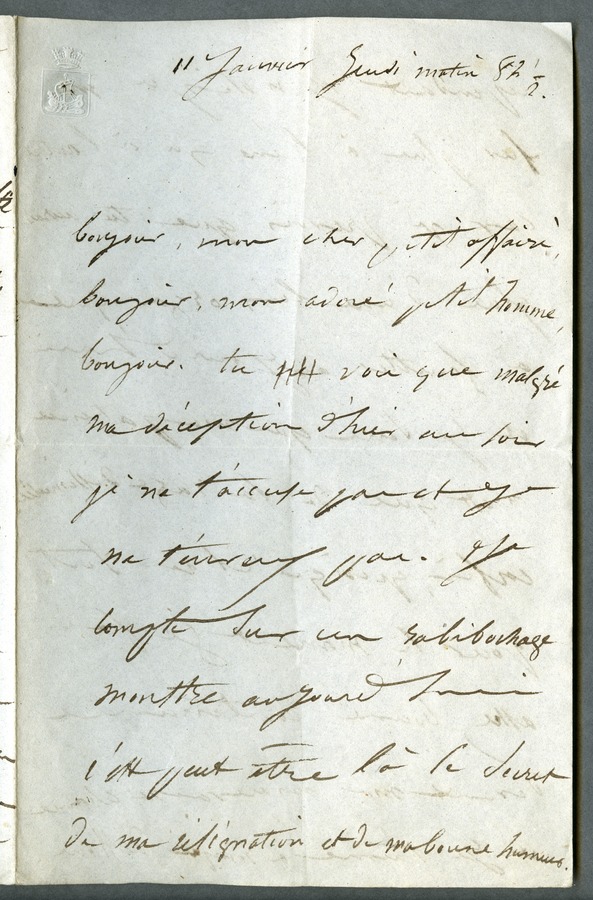 11 Janvier Jeudi matin 8h ½.
bonjour, mon cher petit affairé,
bonjour, mon adoré petit homme,
bonjour. tu vois que malgré
ma déception d'hier au soir
je ne t'accuse pas et je
ne t'en veux pas. Je
compte sur un rabibochage
monstre aujourd'hui
c'est peut être là le secret
de ma résignation et de ma bonne humeur.